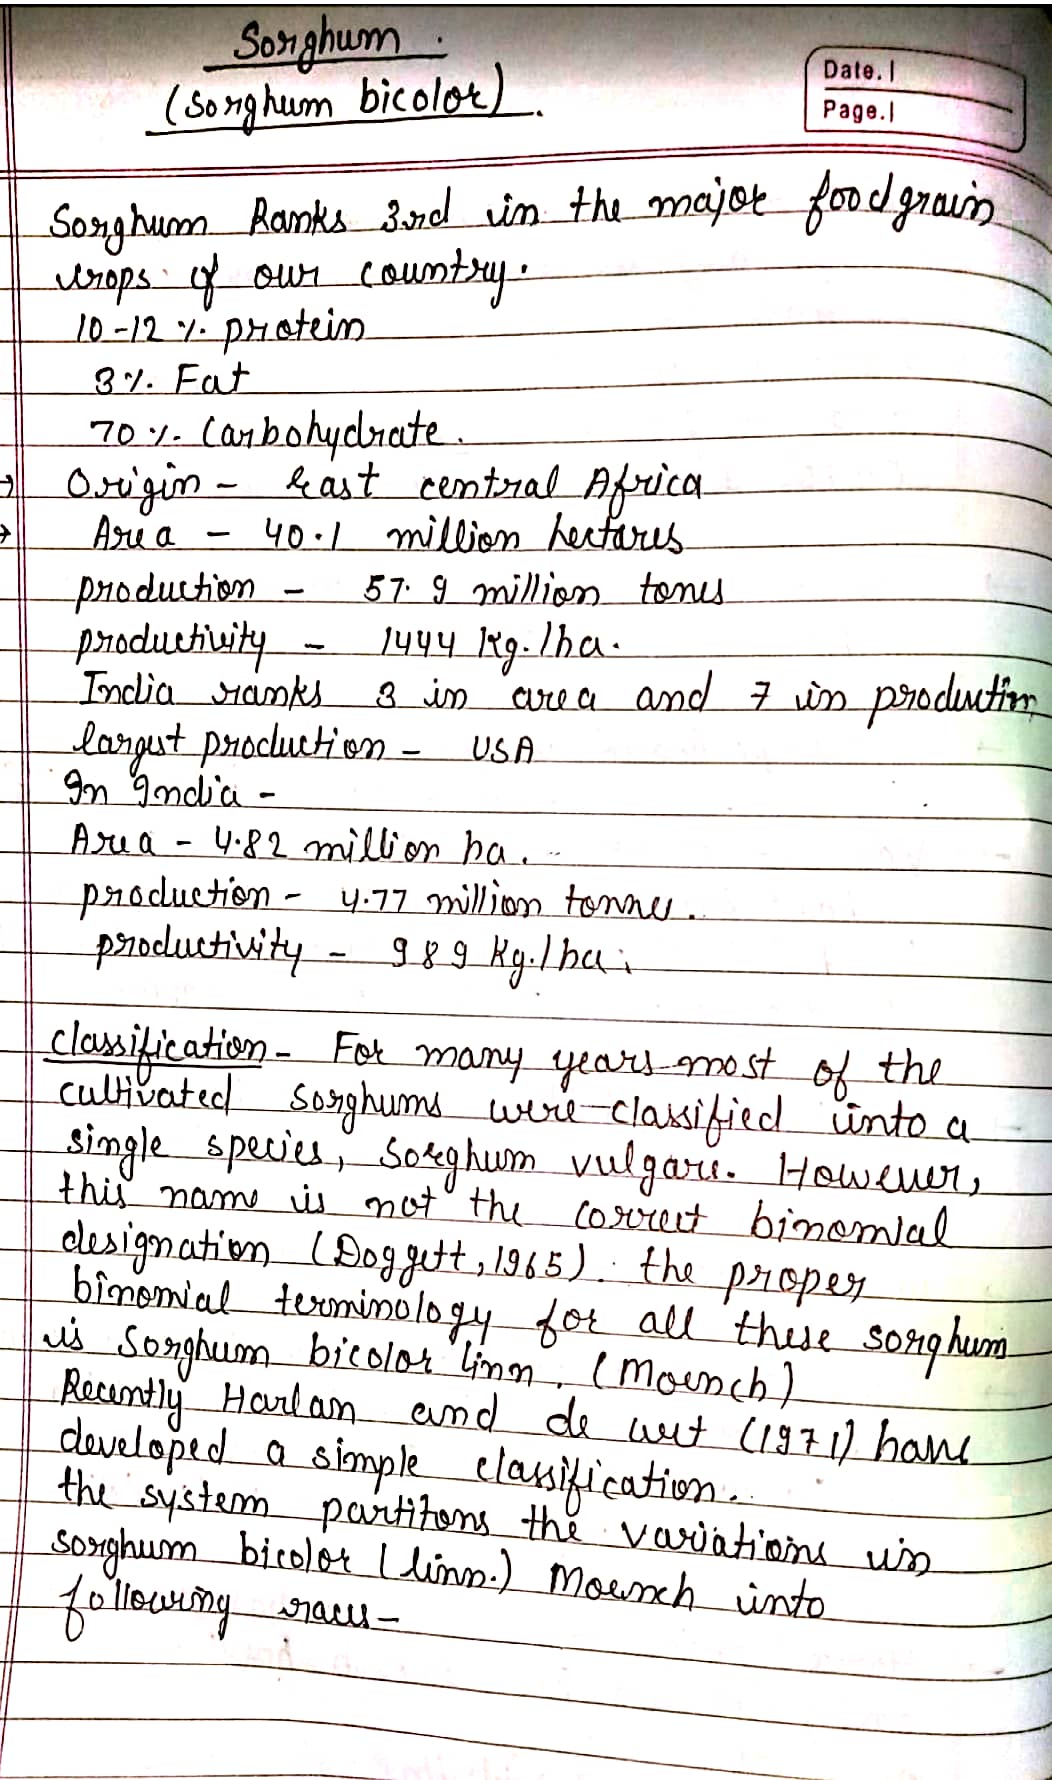 Sorghum.
(Sorghum bicolor).
Date.
Page.
Sorghum Ranks 3rd in the major foodgrain
crops of our country.
10-12 %. protein
3%. Fat
70%. Carbohydrate.
→ Origin - East central Africa
→ Area - 40.1 million hectares
production - 57.9 million tones
productivity - 1444 Kg./ha.
India ranks 3 in area and 7 in production
largest production - USA
In India -
Area - 4.82 million ha.
production - 4.77 million tonnes.
productivity - 989 Kg./ha.
classification - For many years most of the
cultivated sorghums were classified into a
single species, Sorghum vulgare. However,
this name is not the correct binomial
designation (Doggett, 1965). the proper
binomial terminology for all these sorghum
is Sorghum bicolor linn. (Moench)
Recently Harlan and de wet (1971) have
developed a simple classification.
the system partitons the variations in
sorghum bicolor (linn.) Moench into
following races -